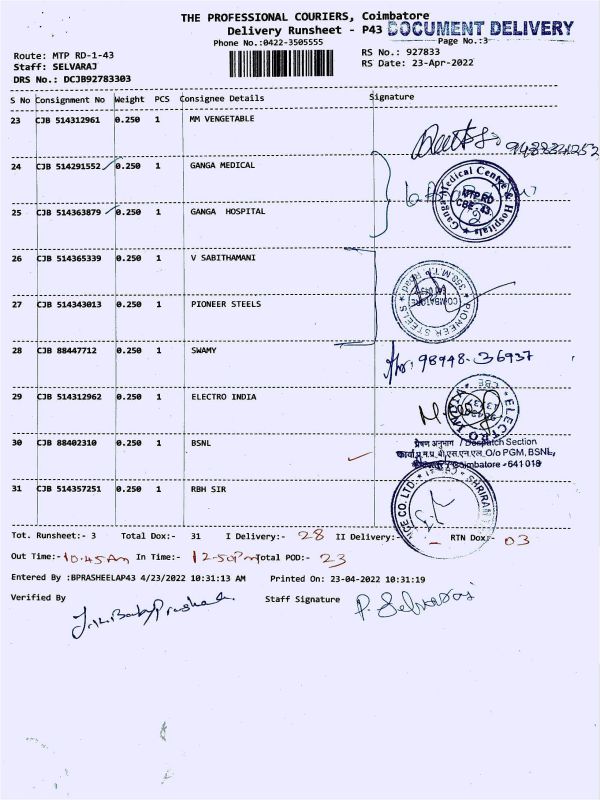 THE PROFESSIONAL COURIERS, Coimbatore
Delivery Runsheet - P43 DOCUMENT DELIVERY
Phone No.:0422-3505555 Page No.:3
Route: MTP RD-1-43 RS No.: 927833
Staff: SELVARAJ RS Date: 23-Apr-2022
DRS No.: DCJB92783303
S No Consignment No Weight PCS Consignee Details Signature
23 CJB 514312961 0.250 1 MM VENGETABLE
24 CJB 514291552 0.250 1 GANGA MEDICAL
Ganga Medical Centre & Hospitals
MTP RD
CBE - 43
25 CJB 514363879 0.250 1 GANGA HOSPITAL
26 CJB 514365339 0.250 1 V SABITHAMANI
27 CJB 514343013 0.250 1 PIONEER STEELS
PIONEER STEELS 368, M.T.P. Road
COIMBATORE
28 CJB 88447712 0.250 1 SWAMY 98948-36937
29 CJB 514312962 0.250 1 ELECTRO INDIA
ELECTRO INDIA CBE
30 CJB 88402310 0.250 1 BSNL
प्रेषण अनुभाग / Despatch Section
O/o PGM, BSNL,
Coimbatore - 641 018
31 CJB 514357251 0.250 1 RBH SIR
CO. LTD. SHRIRAM
Tot. Runsheet:- 3 Total Dox:- 31 I Delivery:- 28 II Delivery:- - RTN Dox:- 03
Out Time:- 10.45Am In Time:- 12-50Pm Total POD:- 23
Entered By :BPRASHEELAP43 4/23/2022 10:31:13 AM Printed On: 23-04-2022 10:31:19
Verified By Staff Signature P. Selvaraj